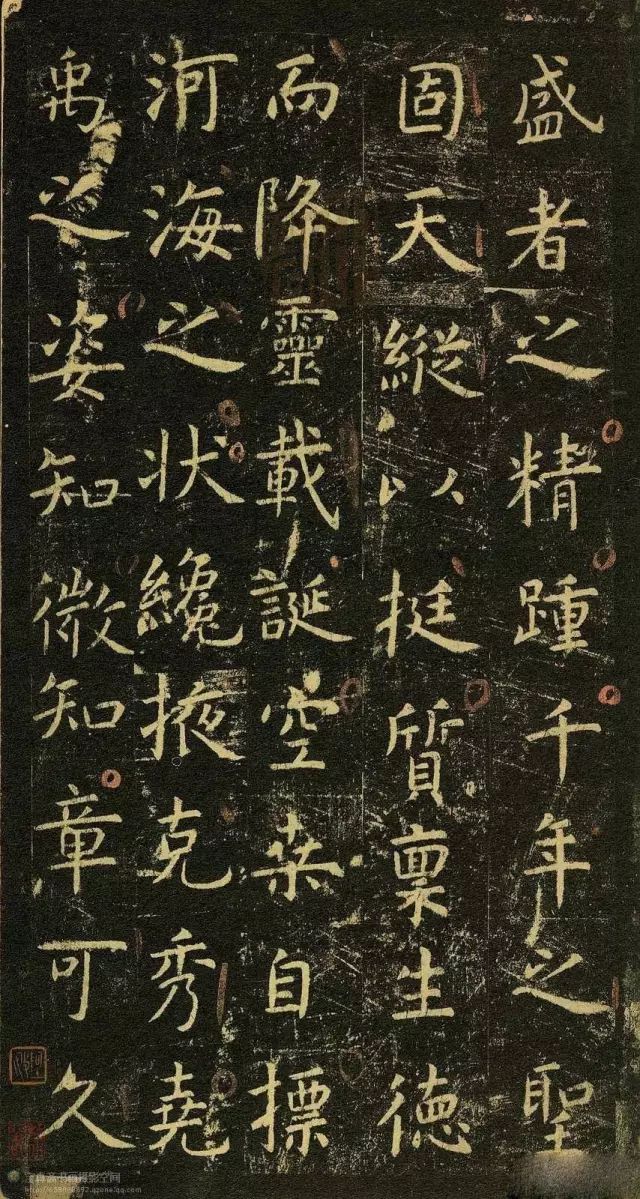 盛者之精踵千年之聖
固天縱以挺質稟生德
而降靈載誕空桒自標
河海之状纔掖克秀堯
禹之姿知微知章可久